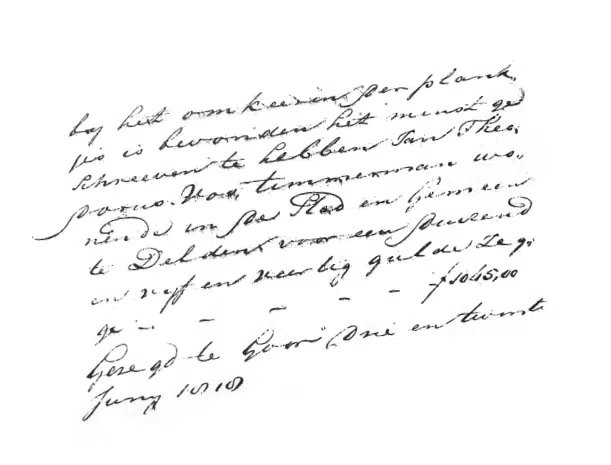 bij het omkeeren der plank,
jes is bevonden het minst ge
schreeven te hebben Jan Theo,
dorus Vos, timmerman wo,
nende in de Stad en Gemeen
te Delden, voor een duizend
en vijf en veertig gulde Zeg,
ge - - - - - f 1045,00
te Goor Drie en twinti
Juny 1818